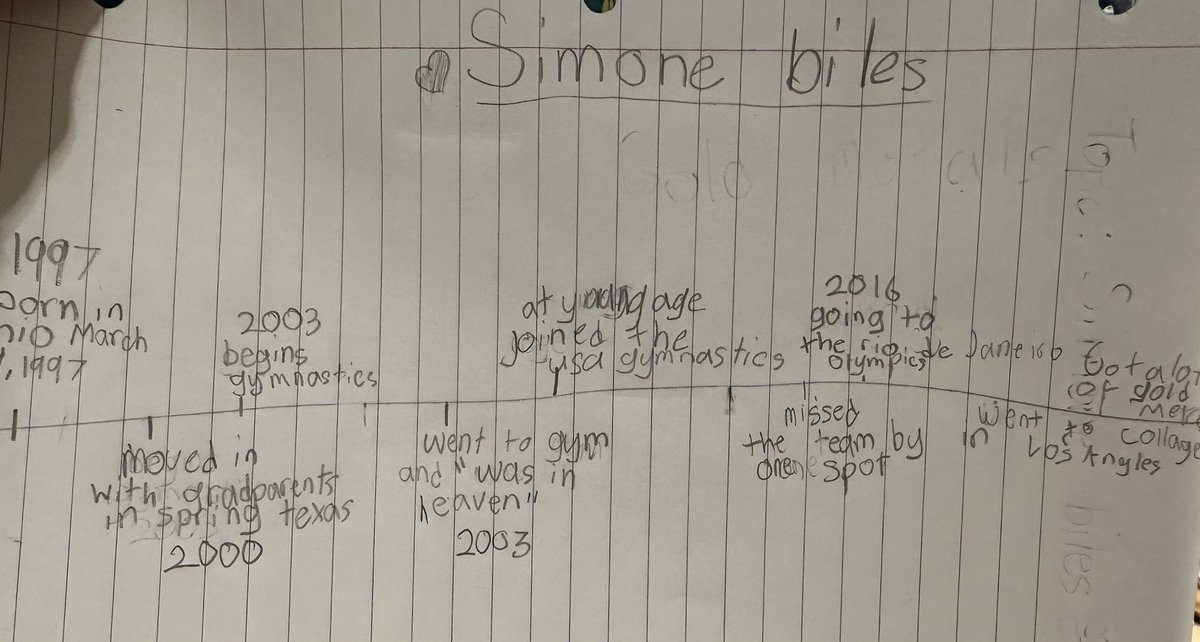 Simone biles
1997
born in
hio March
, 1997
2003
begins
gymnastics
at young age
joined the
usa gymnastics
2016
going to
the rio de Janeiro
Olympics
Got alot
of gold
moved in
with gradparents
in spring texas
2000
went to gym
and "was in
heaven"
2003
missed
the team by
one spot
went to collage
in Los Angles
Topic: Simone
biles